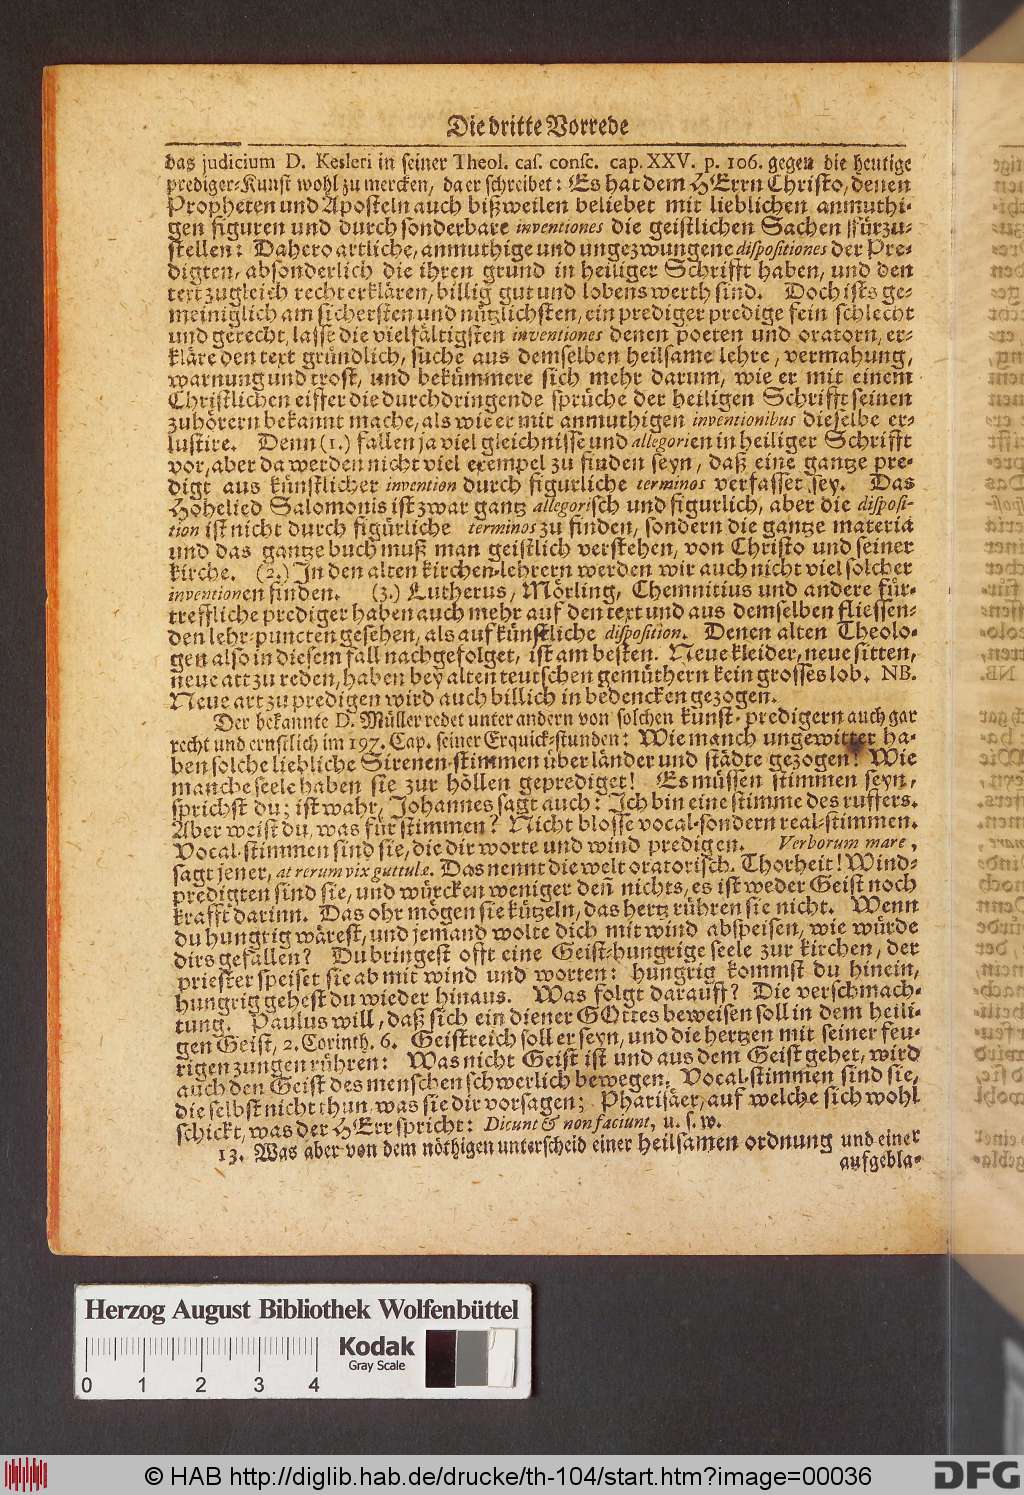 Die dritte Vorrede
das judicium D. Kesleri in seiner Theol. cas. consc. cap. XXV. p. 106. gegen die heutige
prediger-Kunst wohl zu mercken, da er schreibet: Es hat dem HErrn Christo, denen
Propheten und Aposteln auch bißweilen beliebet mit lieblichen anmuthi-
gen figuren und durch sonderbare inventiones die geistlichen Sachen fürzu-
stellen: Dahero artliche, anmuthige und ungezwungene dispositiones der Pre-
digten, absonderlich die ihren grund in heiliger Schrifft haben, und den
text zugleich recht erklären, billig gut und lobens werth sind. Doch ists ge-
meiniglich am sichersten und nützlichsten, ein prediger predige fein schlecht
und gerecht, lasse die vielfältigsten inventiones denen poeten und oratorn, er-
kläre den text gründlich, suche aus demselben heilsame lehre, vermahung,
warnung und trost, und bekümmere sich mehr darum, wie er mit einem
Christlichen eiffer die durchdringende sprüche der heiligen Schrifft seinen
zuhörern bekannt mache, als wie er mit anmuthigen inventionibus dieselbe er-
lustire. Denn (1.) fallen ja viel gleichnisse und allegorien in heiliger Schrifft
vor, aber da werden nicht viel exempel zu finden seyn, daß eine gantze pre-
digt aus künstlicher invention durch figurliche terminos verfasset sey. Das
Hohelied Salomonis ist zwar gantz allegorisch und figurlich, aber die disposi-
tion ist nicht durch figürliche terminos zu finden, sondern die gantze materia
und das gantze buch muß man geistlich verstehen, von Christo und seiner
kirche. (2.) In den alten kirchen-lehrern werden wir auch nicht viel solcher
inventionen finden. (3.) Lutherus, Mörling, Chemnitius und andere für-
treffliche prediger haben auch mehr auf den text und aus demselben fliessen-
den lehr-puncten gesehen, als auf künstliche disposition. Denen alten Theolo-
gen also in diesem fall nachgefolget, ist am besten. Neue kleider, neue sitten,
neue art zu reden, haben bey alten teutschen gemüthern kein grosses lob. NB.
Neue art zu predigen wird auch billich in bedencken gezogen.
Der bekannte D. Müller redet unter andern von solchen kunst-predigern auch gar
recht und ernstlich im 197. Cap. seiner Erquick-stunden: Wie manch ungewitter ha-
ben solche liebliche Sirenen-stimmen über länder und städte gezogen! Wie
manche seele haben sie zur höllen geprediget! Es müssen stimmen seyn,
sprichst du; ist wahr, Johannes sagt auch: Ich bin eine stimme des ruffers.
Aber weist du, was für stimmen? Nicht blosse vocal-sondern real-stimmen.
Vocal-stimmen sind sie, die dir worte und wind predigen. Verborum mare,
sagt jener, at rerum vix guttulæ. Das nennt die welt oratorisch. Thorheit! Wind-
predigten sind sie, und würcken weniger deñ nichts, es ist weder Geist noch
krafft darinn. Das ohr mögen sie kützeln, das hertz rühren sie nicht. Wenn
du hungrig wärest, und jemand wolte dich mit wind abspeisen, wie würde
dirs gefallen? Du bringest offt eine Geist-hungrige seele zur kirchen, der
priester speiset sie ab mit wind und worten: hungrig kommst du hinein,
hungrig gehest du wieder hinaus. Was folgt darauff? Die verschmach-
tung. Paulus will, daß sich ein diener GOttes beweisen soll in dem heili-
gen Geist, 2. Corinth. 6. Geistreich soll er seyn, und die hertzen mit seiner feu-
rigen zungen rühren: Was nicht Geist ist und aus dem Geist gehet, wird
auch den Geist des menschen schwerlich bewegen. Vocal-stimmen sind sie,
die selbst nicht thun, was sie dir vorsagen; Pharisäer, auf welche sich wohl
schickt, was der HErr spricht: Dicunt & non faciunt, u. s. w.
13. Was aber von dem nöthigen unterscheid einer heilsamen ordnung und einer
aufgebla-
Herzog August Bibliothek Wolfenbüttel
Kodak
Gray Scale
0 1 2 3 4
© HAB http://diglib.hab.de/drucke/th-104/start.htm?image=00036
DFG